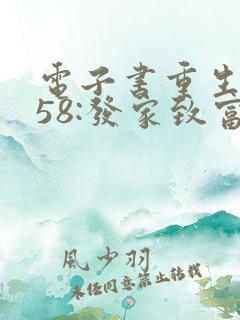 電子書重生
58:發家致富
風少羽
未经同意禁止转载